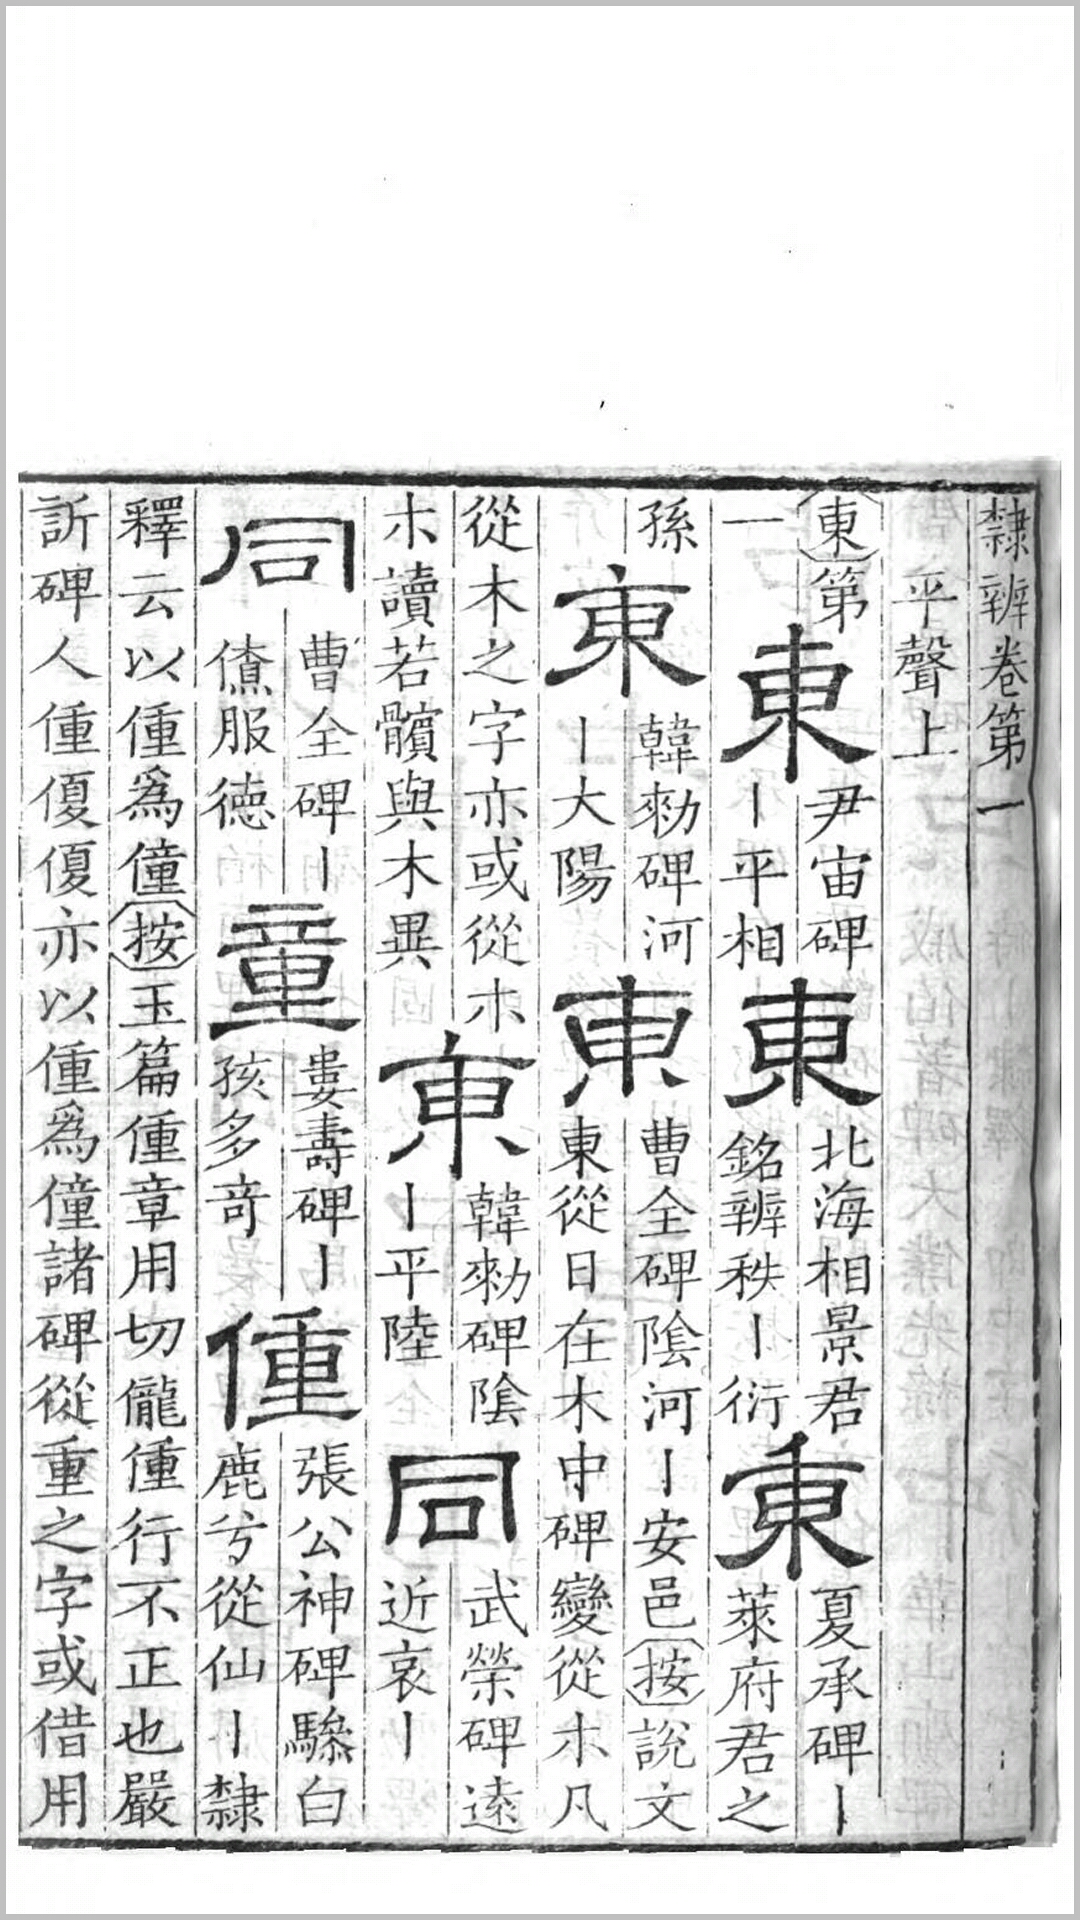 隸辨卷第一
平聲上
東第一
東尹宙碑丨平相東北海相景君銘辨秩丨衍東夏承碑丨萊府君之
孫東韓勑碑河丨大陽東曹全碑陰河丨安邑按說文東從日在木中碑變從朩凡
從木之字亦或從朩朩讀若髕與木異東韓勑碑陰丨平陸同武榮碑遠近哀丨
同曹全碑丨僚服德童婁壽碑丨孩多奇偅張公神碑驂白鹿兮從仙丨隸
釋云以偅爲僮按玉篇偅章用切儱偅行不正也嚴
訢碑人偅優優亦以偅爲僮諸碑從重之字或借用